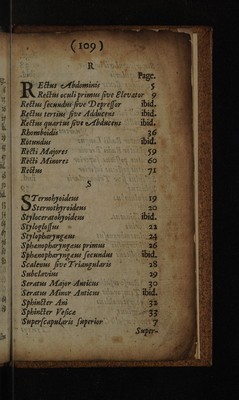 (109)
R
Page.
REctus Abdominis 5
Rectus oculi primus sive Elevator 9
Rectus secundus sive Depressor ibid.
Rectus tertius sive Adducens ibid.
Rectus quartus sive Abducens ibid.
Rhomboidis 36
Rotundus ibid.
Recti Majores 59
Recti Minores 60
Rectus 71
S
STernohyoideus 19
Sternothyroideus 20
Styloceratohyoideus ibid.
Styloglossus 22
Stylopharyngaeus 24
Sphenopharyngaeus primus 26
Sphenopharyngaeus secundus ibid.
Scalenus sive Triangularis 28
Subclavius 29
Seratus Major Anticus 30
Seratus Minor Anticus ibid.
Sphincter Ani 32
Sphincter Vesicæ 33
Superscapularis superior 7
Super-